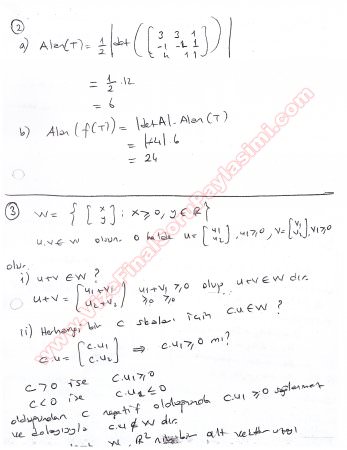 ②
a) Alan(T) = 1/2 |det([3 3 1
-1 -1 1
1 1])|
= 1/2 . 12
= 6
b) Alan (f(T)) = |detA| . Alan(T)
= |-4| . 6
= 24
③ W = { [x y] : x ≥ 0, y ∈ R }
u,v ∈ W olsun. O halde u = [u1 u2], u1 ≥ 0, v = [v1 v2] v1 ≥ 0
olur.
i) u+v ∈ W ?
u+v = [u1+v1 u2+v2] u1+v1 ≥ 0 olup u+v ∈ W dır.
≥0 ≥0
ii) Herhangi bir c skaları için c.u ∈ W ?
c.u = [c.u1 c.u2] ⇒ c.u1 ≥ 0 mı?
c > 0 ise c.u1 ≥ 0
c < 0 ise c.u2 ≤ 0
olduğundan c negatif olduğunda c.u1 ≥ 0 sağlanmaz
ve dolayısıyla c.u ∉ W dır.
W, R² nin bir alt vektör uzayı